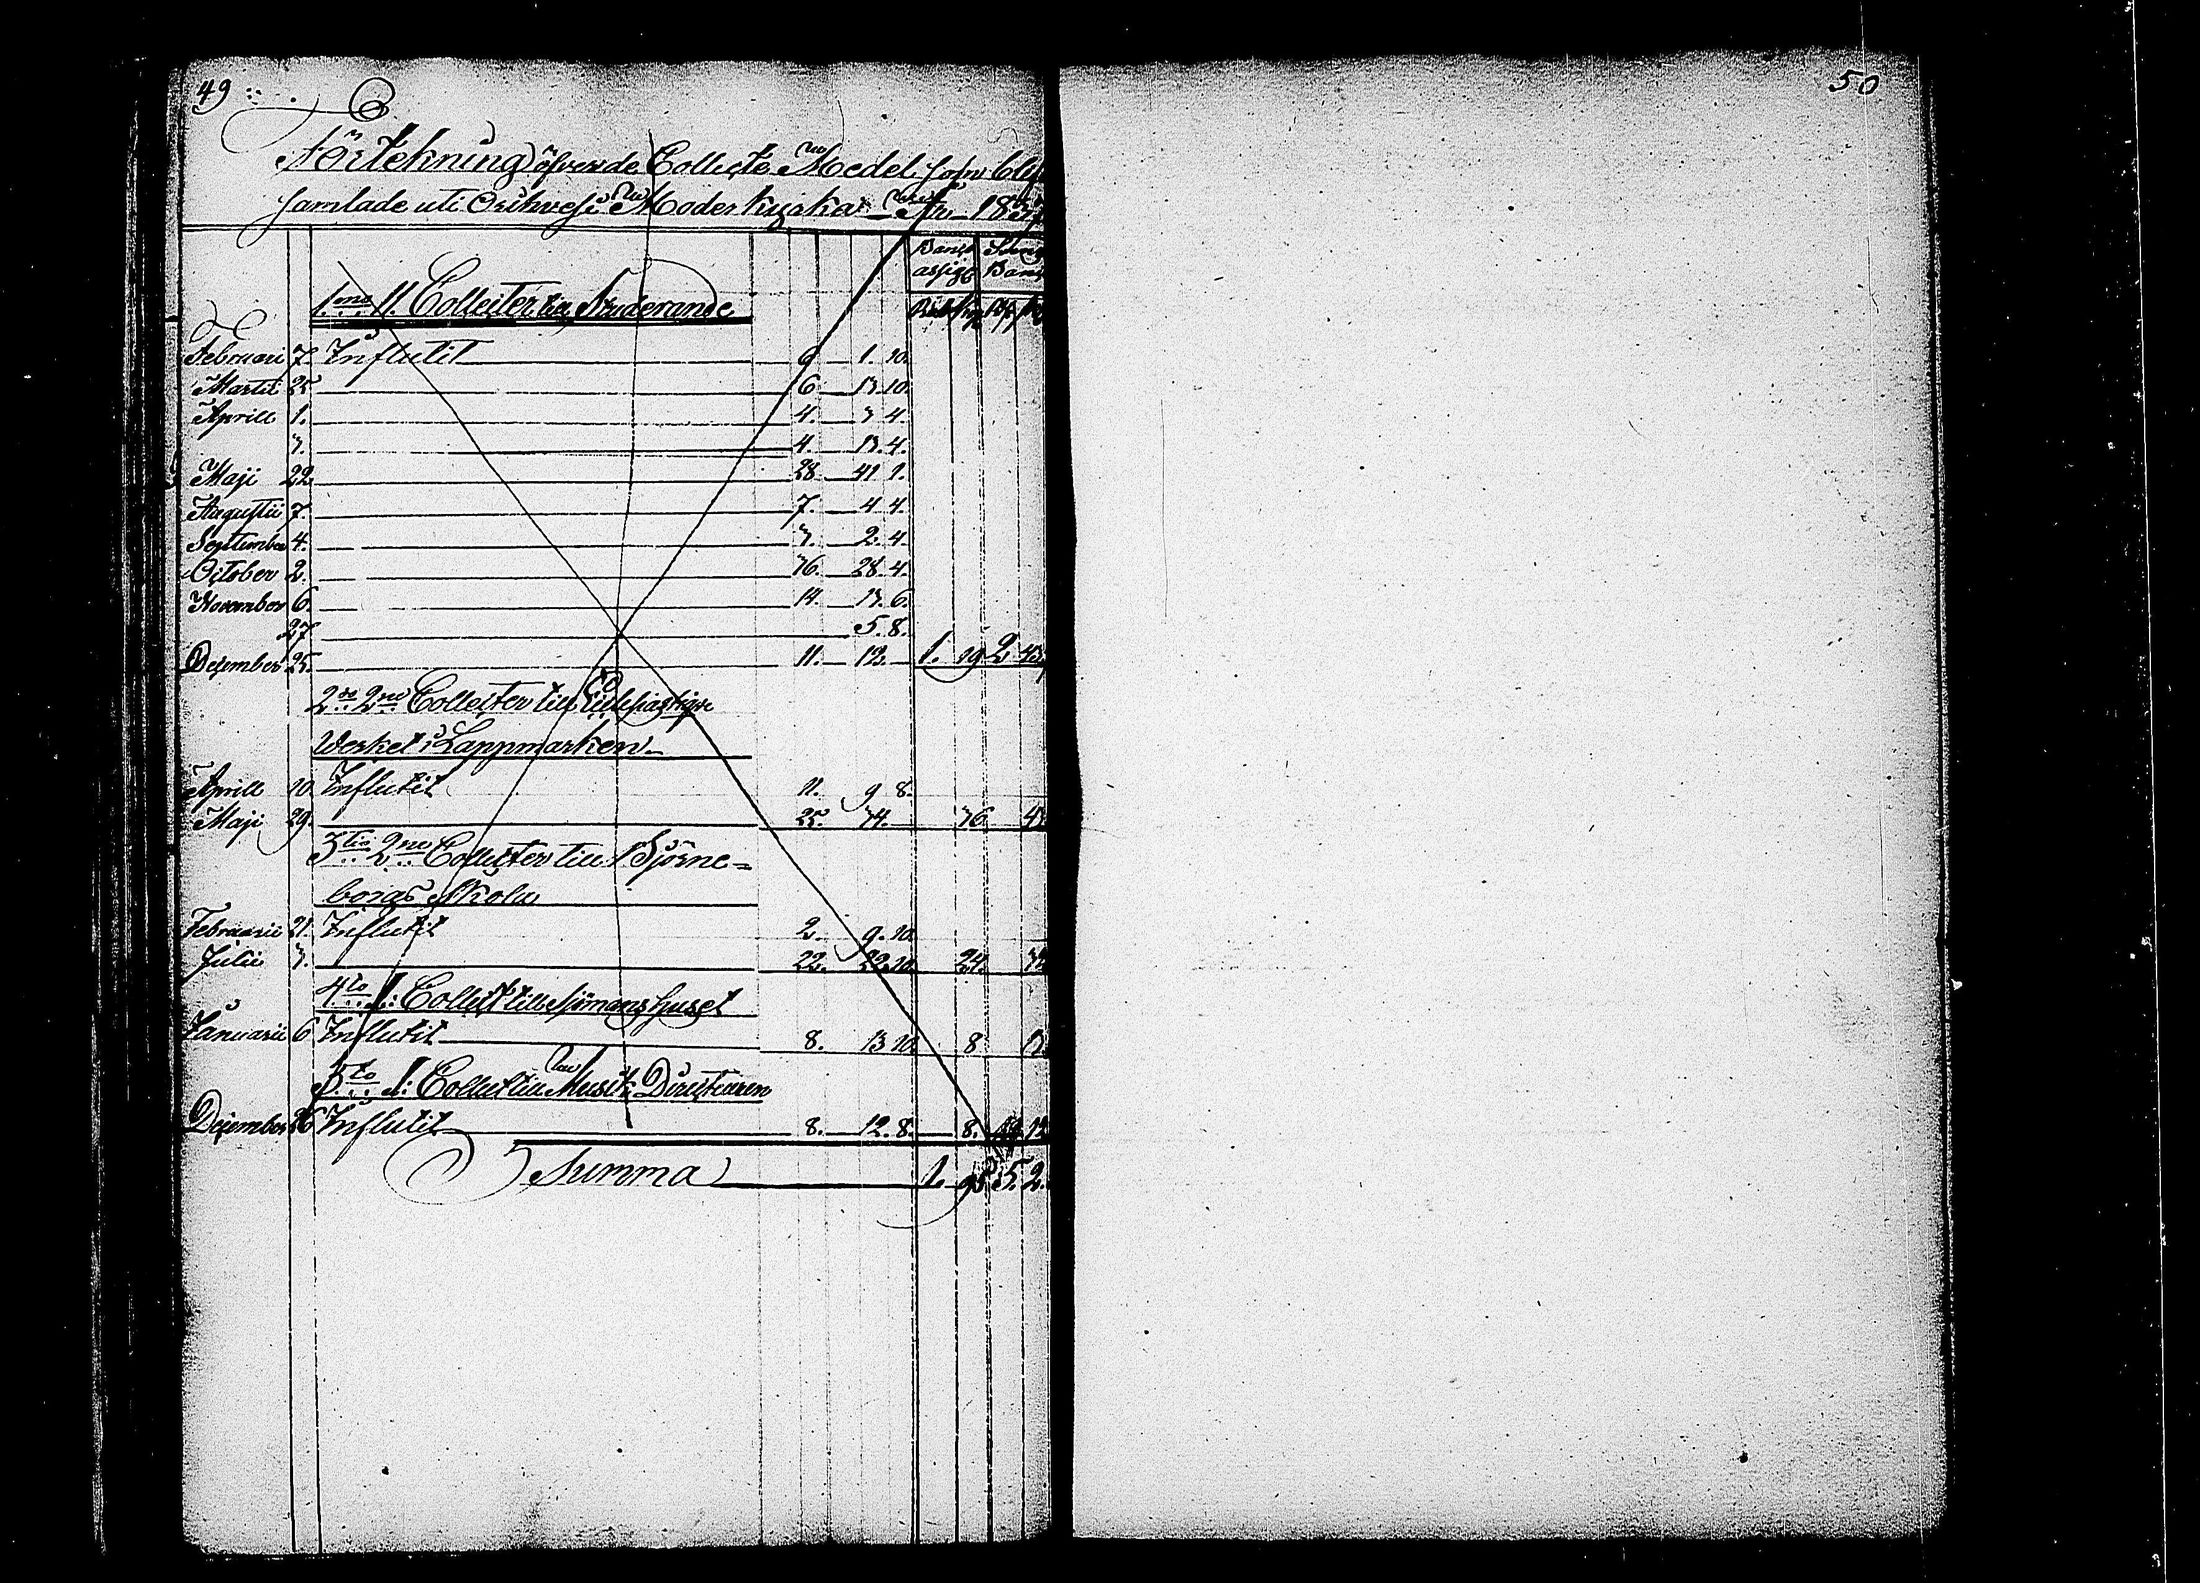 49
Förtekning öfver de Collecte Medel som blif
samlade uti Orihvesi Moderkyrka År 183
Banco assign. Banco
1mo 11. Collecter till Studerande
Februari 7. Influtit 1. 10.
Martii 25 6. 13. 10.
Aprill 1. 4. 3 4.
3. 4. 13. 4.
Maji 22. 28 41 1.
Augusti 7. 7. 4 4.
September 4. 3. 2. 4.
October 2. 36. 28. 4.
November 6. 14. 13. 6.
27. 5. 8.
December 25. 11. 12. 1. 19 2 43
2do 2ne Collecter till
Werket i Lappmarken
Aprill 10. Influtit 11. 9 8.
Maji 29. 25. 34. 36. 43
3tio 2ne Collecter till Björne=
borgs Skola
Februarii 21. Influtit 2. 9. 10.
Julii 3. 22. 22. 10. 24. 32
4to 1: Collect till Sjömanshuset
Januarii 6 Influtit 8. 13 10. 8 13
5to 1: Collect till Musik Directeuren
December 26 Influtit 8. 12. 8. 8. 12
Summa 1. 95 5. 2.
50